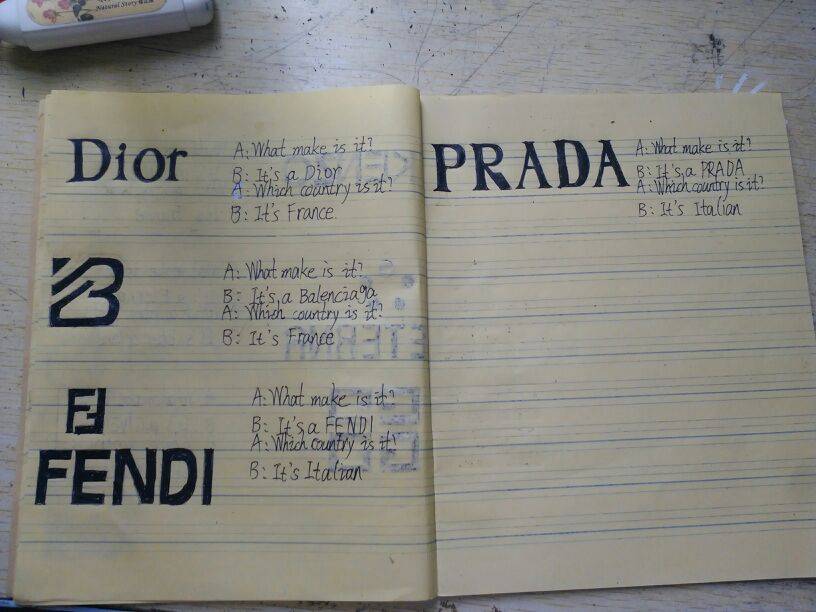 Natural Story
Dior
A: What make is it?
B: It's a Dior
A: Which country is it?
B: It's France.
B
A: What make is it?
B: It's a Balenciaga
A: Which country is it?
B: It's France
FF
FENDI
A: What make is it?
B: It's a FENDI
A: Which country is it?
B: It's Italian
PRADA
A: What make is it?
B: It's a PRADA
A: Which country is it?
B: It's Italian